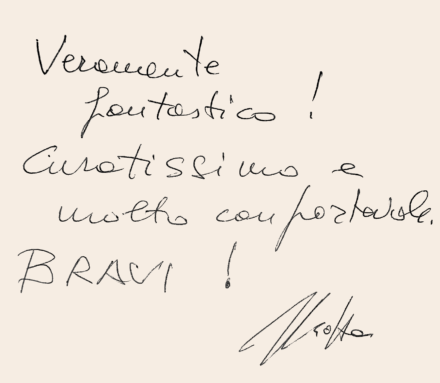 Veramente
fantastico !
Curatissimo e
molto confortevole.
BRAVI !